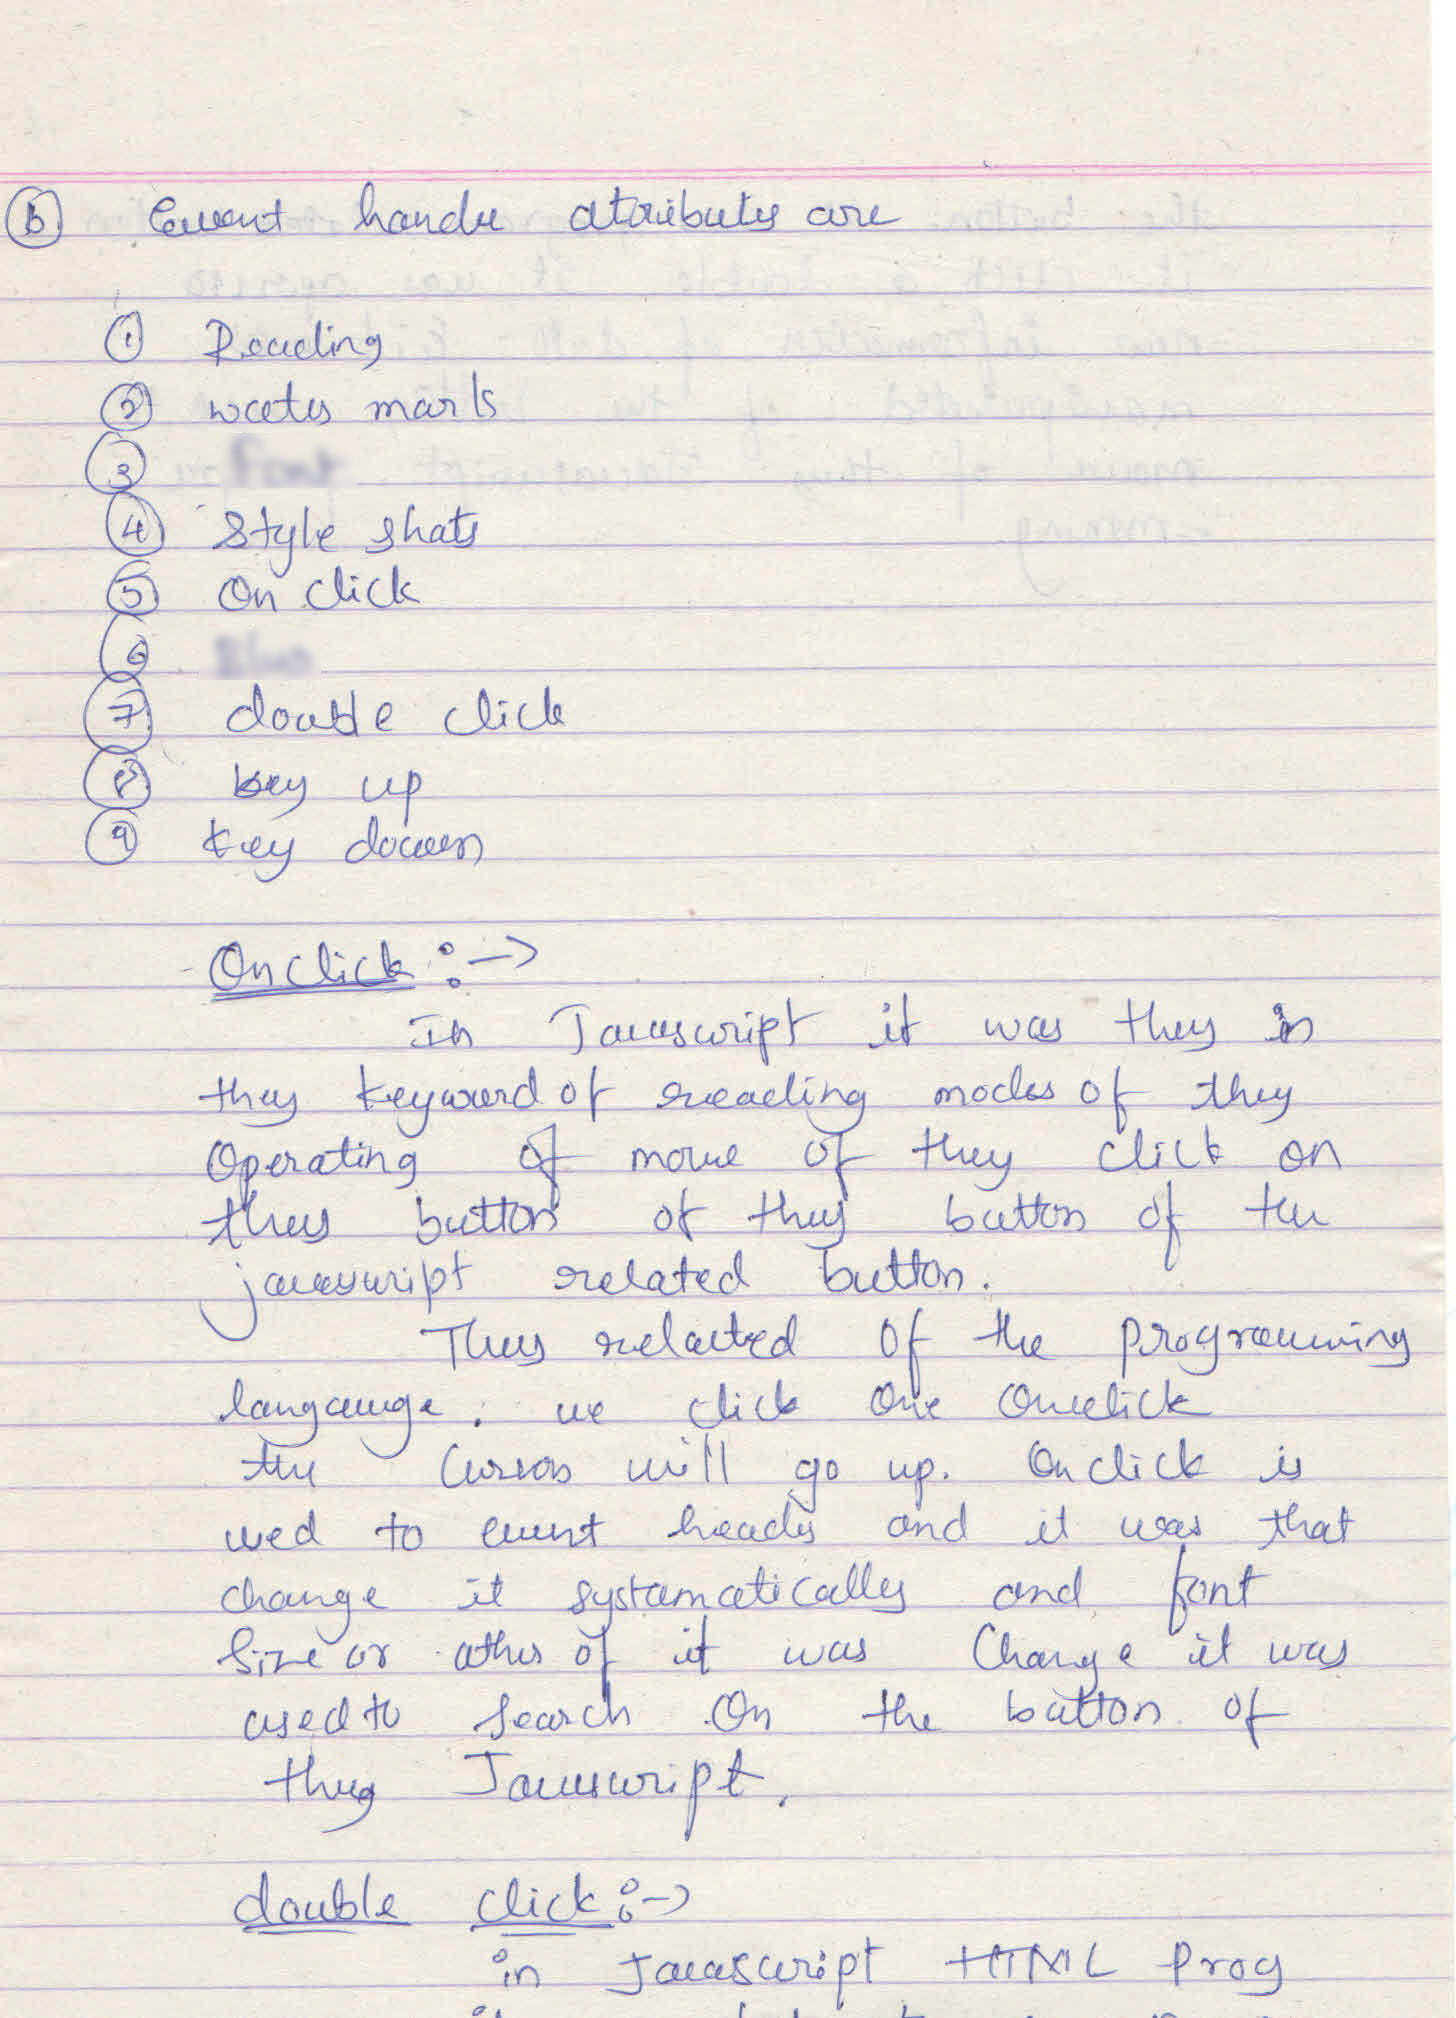 (b) Event handle atributes are
① Reading
② waters marks
③
④ Style shats
⑤ On click
⑥
⑦ double click
⑧ key up
⑨ key down
Onclick :→
In Javascript it was they in
they keyword of reading modes of they
Operating of move of they click on
they button of they button of the
javascript related button.
They related of the programming
langauge. we click One Onclick
the Cursor will go up. Onclick is
used to event heads and it was that
change it systamatically and font
Size or other of it was Change it was
used to search On the button of
they Javascript.
double click :→
in Javascript HTML Prog